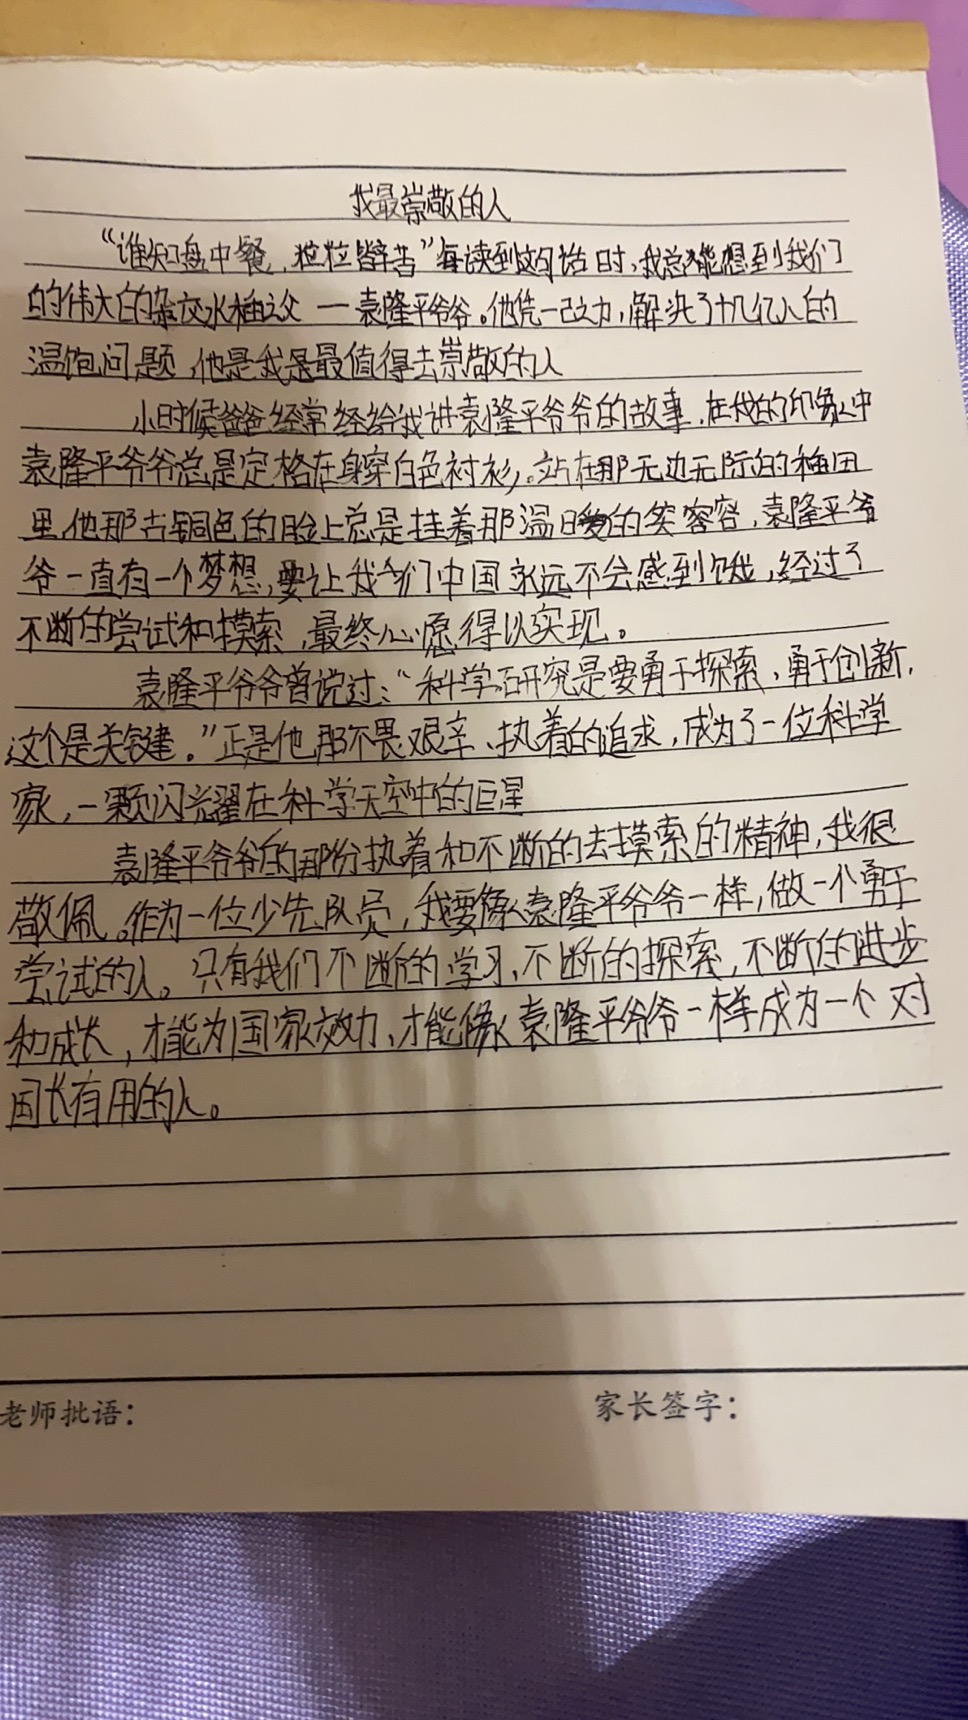 我最崇敬的人
“谁知盘中餐，粒粒皆辛苦”每读到这句话时，我总能想到我们
的伟大的杂交水稻之父——袁隆平爷爷。他凭一己之力，解决了十几亿人的
温饱问题，他是我是最值得去崇敬的人
小时候爸爸经常经给我讲袁隆平爷爷的故事，在我的印象中
袁隆平爷爷总是定格在身穿白色衬衫，站在那无边无际的稻田
里，他那古铜色的脸上总是挂着那温暖的笑容，袁隆平爷
爷一直有一个梦想，要让我们中国永远不会感到饿，经过了
不断的尝试和摸索，最终心愿得以实现。
袁隆平爷爷曾说过：“科学研究是要勇于探索，勇于创新，
这个是关键。”正是他那不畏艰辛、执着的追求，成为了一位科学
家，一颗闪光耀在科学天空中的巨星
袁隆平爷爷的那份执着和不断的去摸索的精神，我很
敬佩。作为一位少先队员，我要像袁隆平爷爷一样，做一个勇于
尝试的人。只有我们不断的学习，不断的探索，不断的进步
和成长，才能为国家效力，才能像袁隆平爷爷一样成为一个对
国长有用的人。
老师批语： 家长签字：